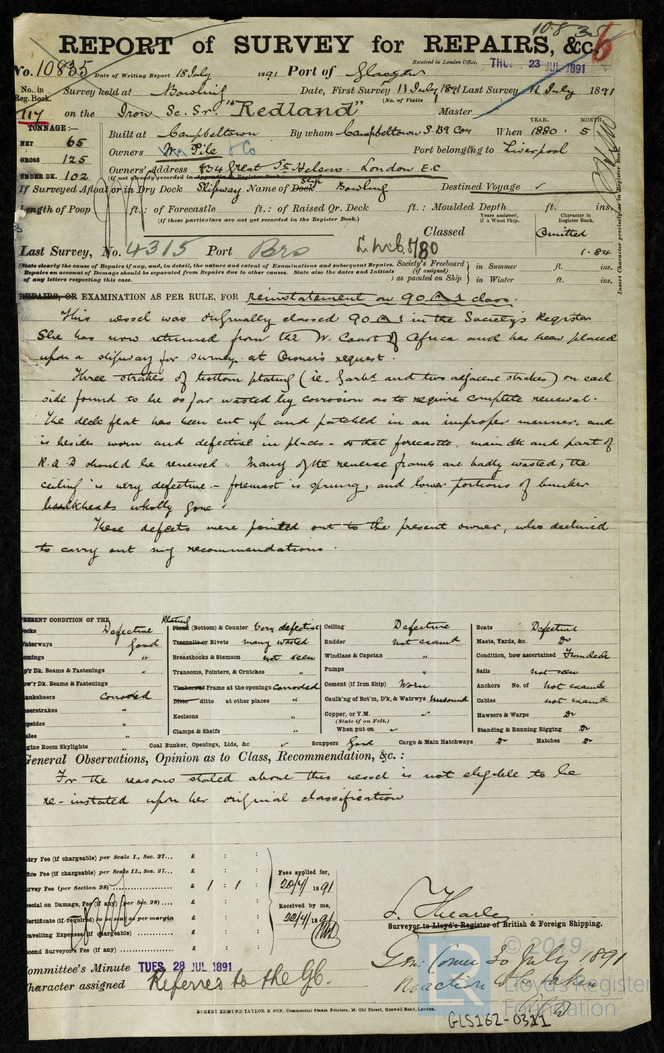 10835
REPORT of SURVEY for REPAIRS, &c.
6
No. 10835 Date of Writing Report 18 July 1891 Port of Glasgow Received in London Office, THU. 23 JUL 1891
No. in Reg. Book. Survey held at Bowling Date, First Survey 11 July 1891 Last Survey 11 July 1891
(No. of Visits
717 on the Iron Sc. Sr. "Redland" Master
TONNAGE:—
YEAR. MONTH.
NET 65 Built at Campbeltown By whom Campbeltown S.B. Coy When 1880 . 5
GROSS 125 Owners Wm Pile & Co Port belonging to Liverpool
UNDER DK. 102 Owners' Address 34 Great St Helens. London E.C
(if not already recorded in Appendix to Register Book.)
If Surveyed Afloat or in Dry Dock Slipway Name of Dock Slip Bowling Destined Voyage
Length of Poop ft.: of Forecastle ft.: of Raised Qr. Deck ft.: Moulded Depth ft. ins.
(if these particulars are not yet recorded in the Register Book.)
Years assigned, if a Wood Ship.
Character in Register Book.
Classed Omitted
Last Survey, No. 4315 Port Brs 1.84
(State clearly the cause of Repairs if any, and, in detail, the nature and extent of Examinations and subsequent Repairs.
Repairs on account of Damage should be separated from Repairs due to other causes. State also the dates and Initials
of any letters respecting this case.
Society's Freeboard (if assigned) as painted on Ship
in Summer ft. ins.
in Winter ft. ins.
Insert Character precisely as in Register Book.
REPAIRS, OR EXAMINATION AS PER RULE, FOR reinstatement on 90 A 1 class.
This vessel was originally classed 90 A 1 in the Society's Register
She has now returned from the W. Coast of Africa and has been placed
upon a slipway for survey at Owner's request.
Three strakes of bottom plating (ie. Garbd and two adjacent strakes) on each
side found to be so far wasted by corrosion as to require complete renewal.
The deck flat has been cut up and patched in an improper manner, and
is besides worn and defective in places - so that forecastle, main dk and part of
R.Q.D should be renewed. Many of the reverse frames are badly wasted, the
ceiling is very defective - foremast is sprung, and lower portions of bunker
bulkheads wholly gone.
These defects were pointed out to the present owner, who declined
to carry out my recommendations.
PRESENT CONDITION OF THE
Decks Defective
Waterways Good
Comings "
Up'r Dk. Beams & Fastenings "
Low'r Dk. Beams & Fastenings
Planksheers corroded
Sheerstrakes "
Topsides "
Wales "
Engine Room Skylights "
Plating
Plank (Bottom) & Counter Very defective
Treenails or Rivets many wasted
Breasthooks & Stemson not seen
Transoms, Pointers, & Crutches "
Timbers or Frame at the openings corroded
Ditto ditto at other places "
Keelsons "
Clamps & Shelfs "
Coal Bunker, Openings, Lids, &c
Ceiling Defective
Rudder not examd
Windlass & Capstan "
Pumps "
Cement (if Iron Ship) Worn
Caulk'ng of Bot'm, D'k, & Watrwys Unsound
Copper, or Y.M.
(State if on Felt.)
When put on
Scuppers Good
Boats Defective
Masts, Yards, &c. Do
Condition, how ascertained From deck
Sails not seen
Anchors No. of not examd
Cables not examd
Hawsers & Warps Do
Standing & Running Rigging Do
Cargo & Main Hatchways Do Hatches Do
General Observations, Opinion as to Class, Recommendation, &c. :
For the reasons stated above this vessel is not eligible to be
re-instated upon her original classification
Entry Fee (if chargeable) per Scale I., Sec. 27... £ : :
Office Fee (if chargeable) per Scale II., Sec. 27... £ : :
Survey Fee (per Section 28) £ 1 : 1 :
Special on Damage, Fee (if any) (per Sec. 28) £ : :
Certificate (if required) to be sent as per margin
Travelling Expenses (if chargeable) £ : :
Second Surveyor's Fee (if any) £ : :
Fees applied for,
20/7 1891
Received by me,
22/7 1891
Surveyor to Lloyd's Register of British & Foreign Shipping.
Committee's Minute TUES. 28 JUL 1891
Character assigned Referred to the Gb.
Gen: Comee 30 July 1891
No action to be taken
ROBERT EDMUND TAYLOR & SON, Commercial Steam Printers, 19, Old Street, Goswell Road, London.
LR © 2019
Lloyd's Register
Foundation
GLS162-0311